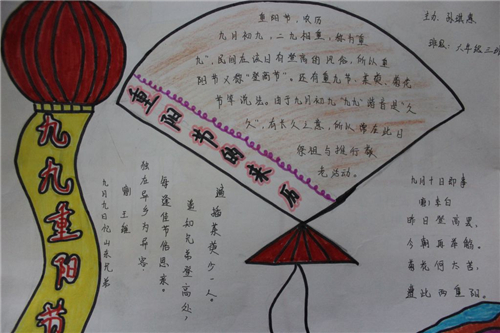 主办:
班级:六年级三
重阳节,农历
九月初九,二九相重,称为"重
九",民间在该日有登高的风俗,所以重
阳节又称"登高节"。还有重九节、茱萸、菊花
节等说法。由于九月初九"九九"谐音是"久
久",有长久之意,所以常在此日
祭祖与推行敬
老活动。
重阳节的来历
九九重阳节
九月九日忆山东兄弟
唐 王维
独在异乡为异客
每逢佳节倍思亲。
遥知兄弟登高处,
遍插茱萸少一人。
九月十日即事
唐 李白
昨日登高罢,
今朝再举觞。
菊花何太苦,
遭此两重阳。